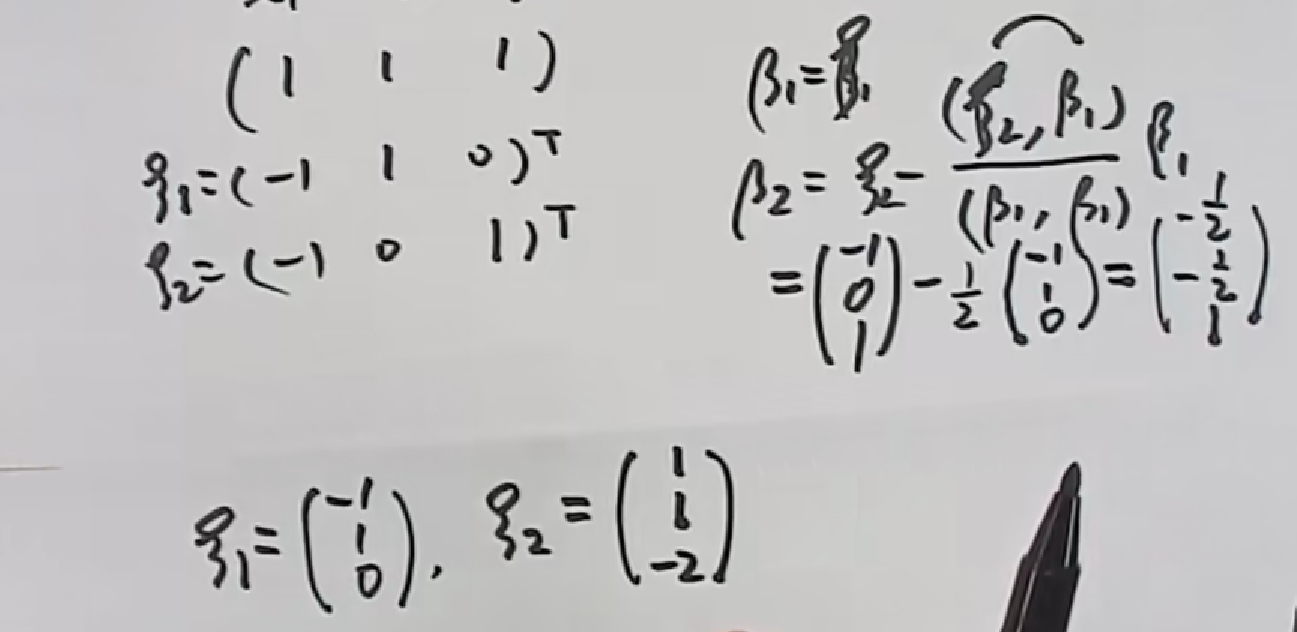 (1 1 1)
ξ₁=(-1 1 0)ᵀ
ξ₂=(-1 0 1)ᵀ
β₁=ξ₁
β₂=ξ₂-(ξ₂,β₁)/(β₁,β₁) β₁
=(-1 0 1)-1/2(-1 1 0)=(-1/2 -1/2 1)
ξ₁=(-1 1 0), ξ₂=(1 1 -2)